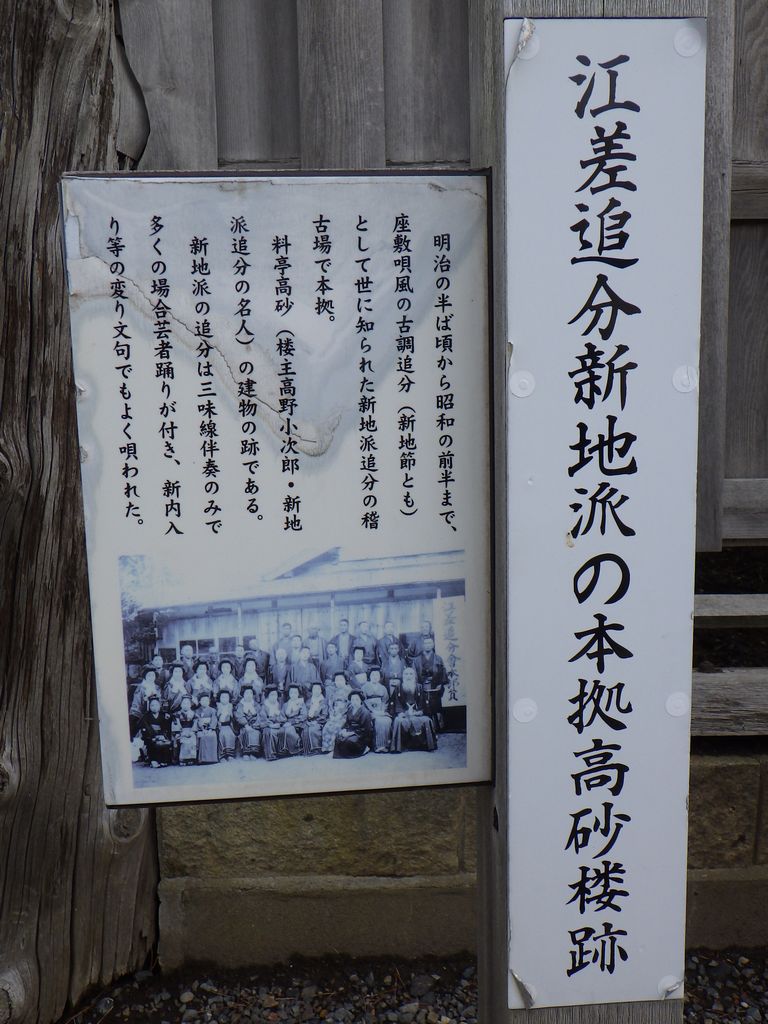 江差追分新地派の本拠高砂楼跡
明治の半ば頃から昭和の前半まで、
座敷唄風の古調追分（新地節とも）
として世に知られた新地派追分の稽
古場で本拠。
料亭高砂（楼主高野小次郎・新地
派追分の名人）の建物の跡である。
新地派の追分は三味線伴奏のみで
多くの場合芸者踊りが付き、新内入
り等の変り文句でもよく唄われた。
江差追分會